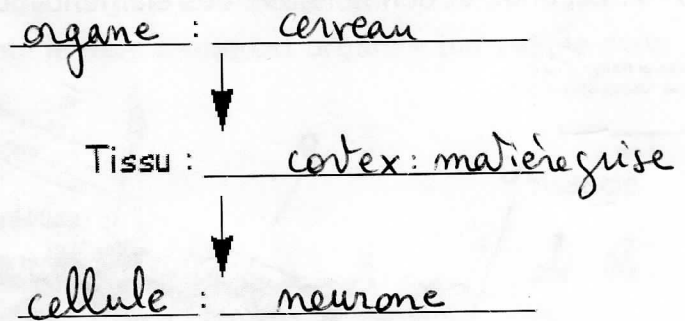 organe : cerveau
Tissu : cortex : matière grise
cellule : neurone